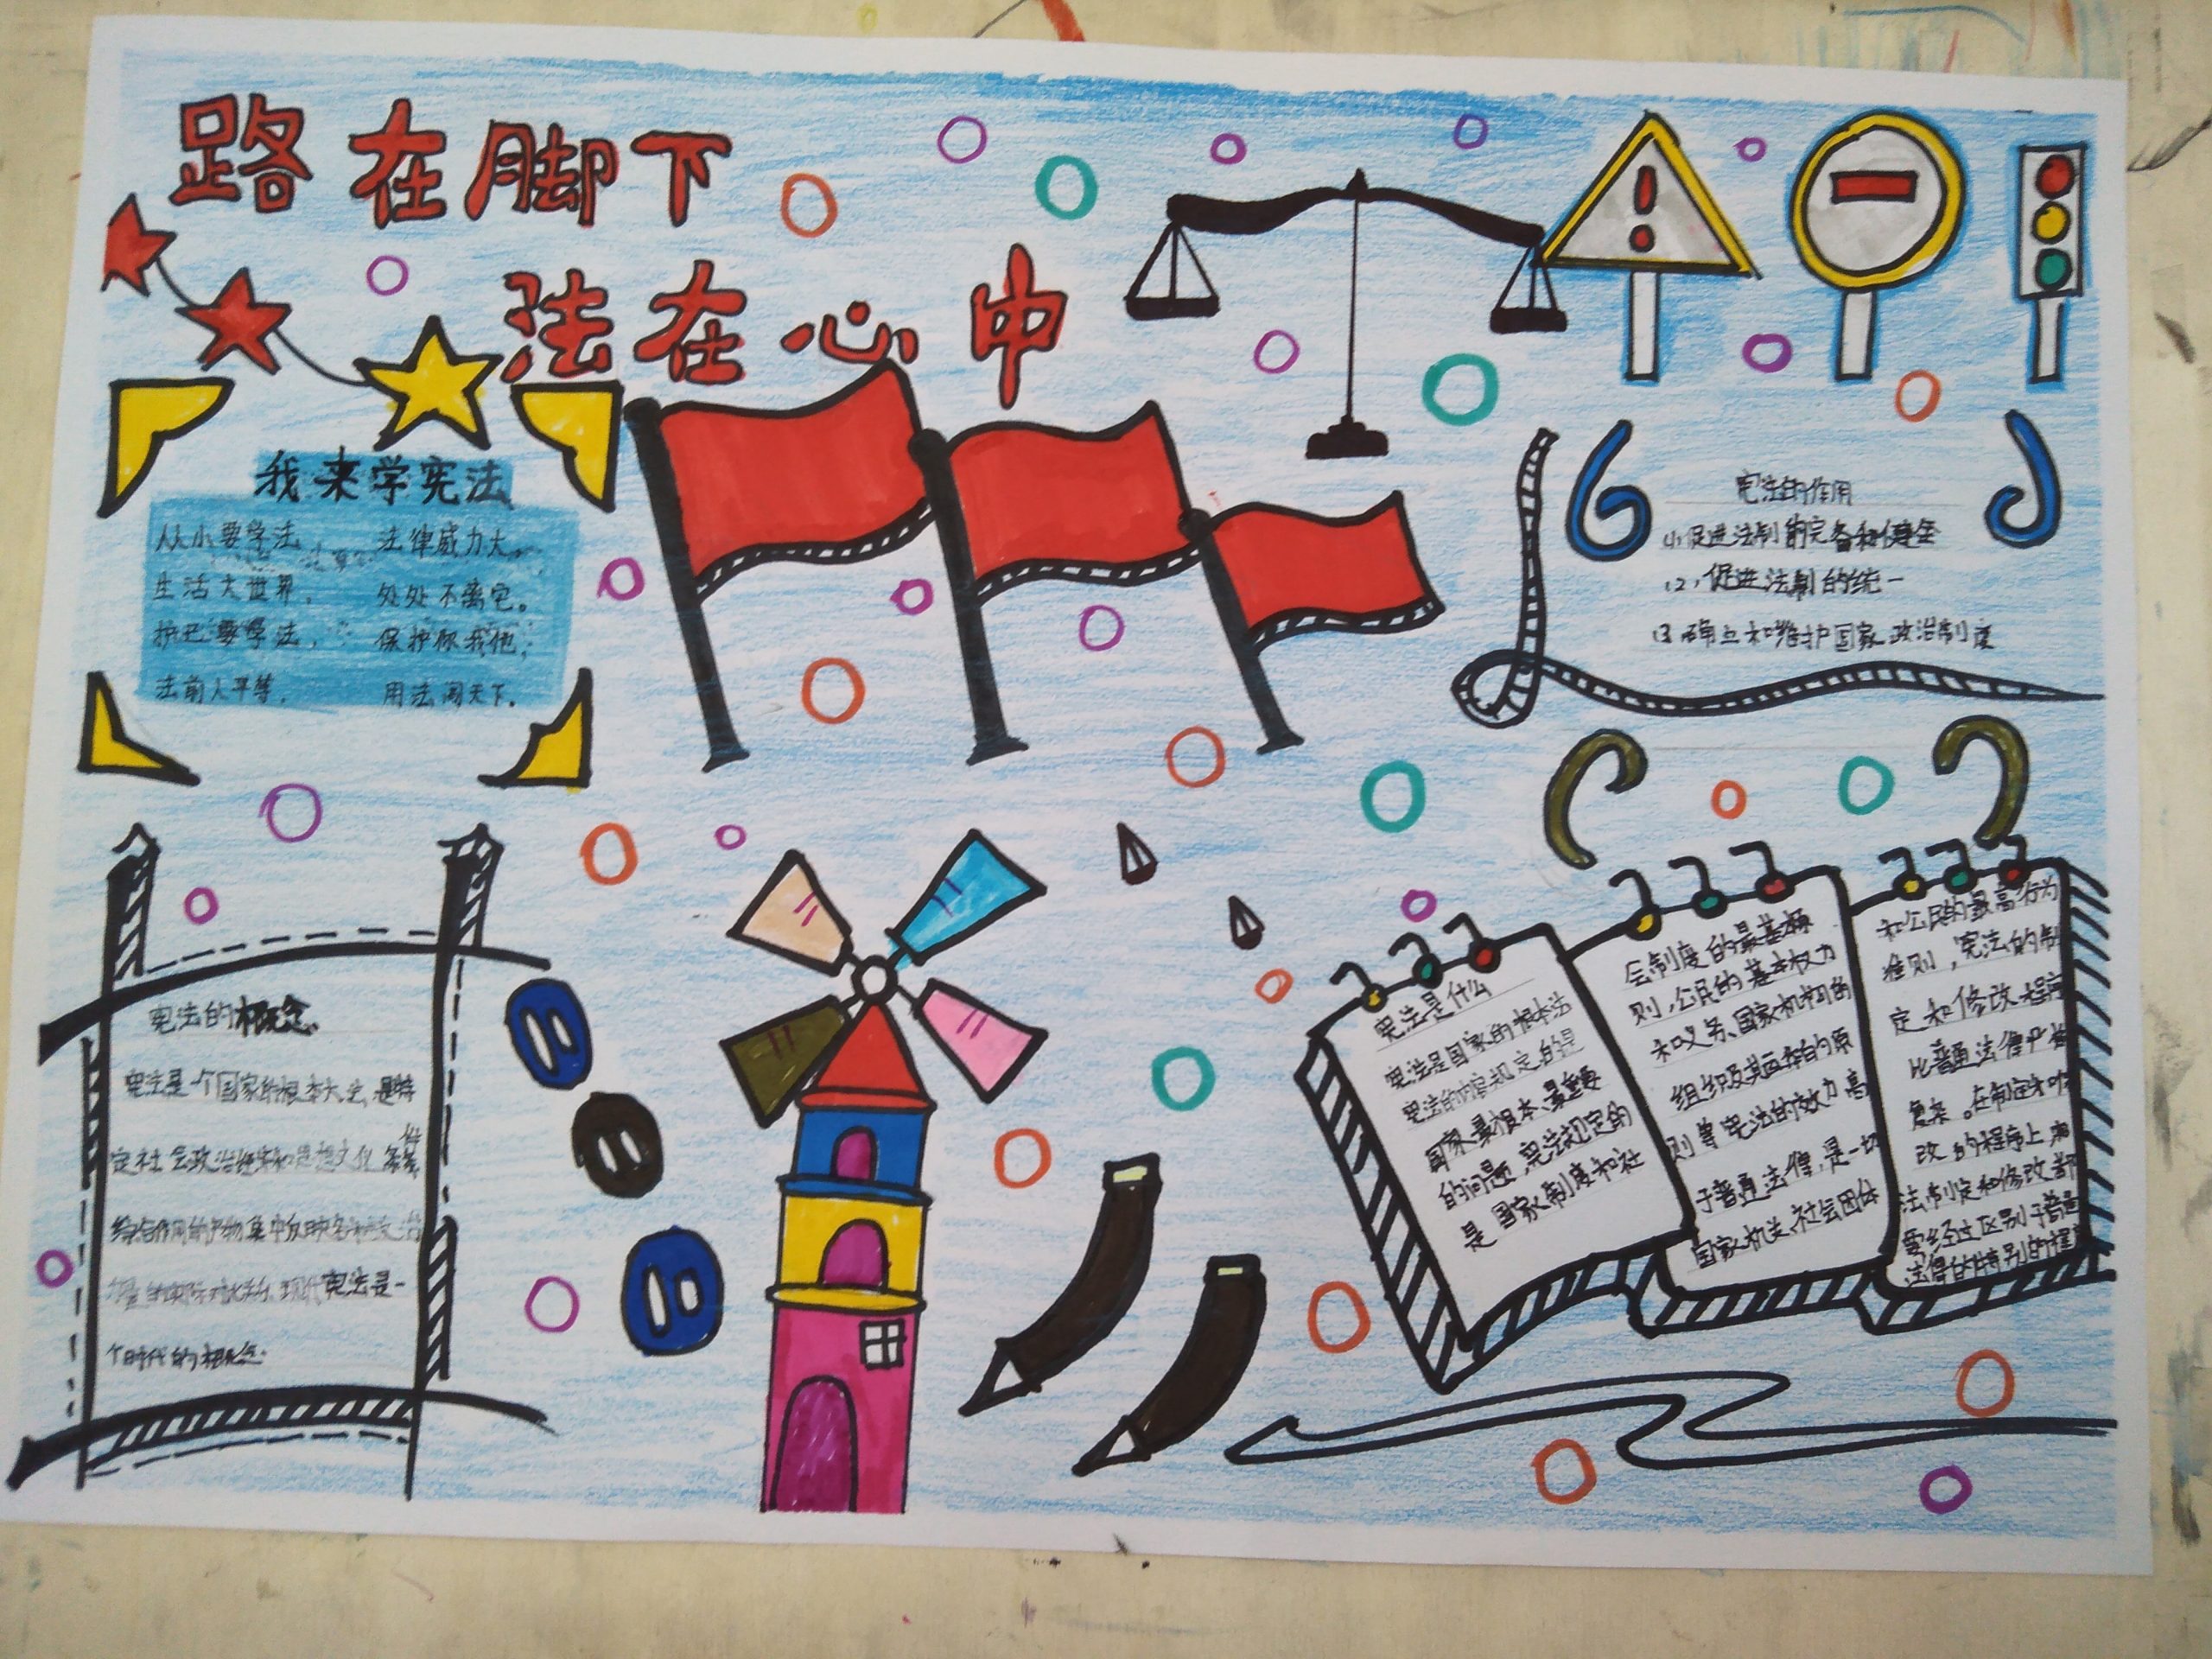 路在脚下
法在心中
我来学宪法
从小要学法 法律威力大。
生活大世界, 处处不离它。
护己要学法, 保护你我他;
法前人平等, 用法闯天下。
宪法的作用
(1)促进法制的完备和健全
(2)促进法制的统一
(3确立和维护国家政治制度
宪法的概念
宪法是一个国家的根本大法,是特
定社会政治经济和思想文化条件
综合作用的产物集中反映各种政治
力量的实际对比关系,现代宪法是一
个时代的概念.
宪法是什么
宪法是国家的根本法
宪法的内容规定的是
国家最根本、最重要
的问题,宪法规定的
是国家制度和社
会制度的最基本原
则,公民的基本权力
和义务、国家机构的
组织及其运作的原
则等宪法的效力高
于普通法律,是一切
国家机关、社会团体
和公民的最高行为
准则,宪法的制
定和修改程序
比普通法律严格
复杂。在制定和修
改的程序上
法制定和修改都
要经过区别于普通
法律的特别的程